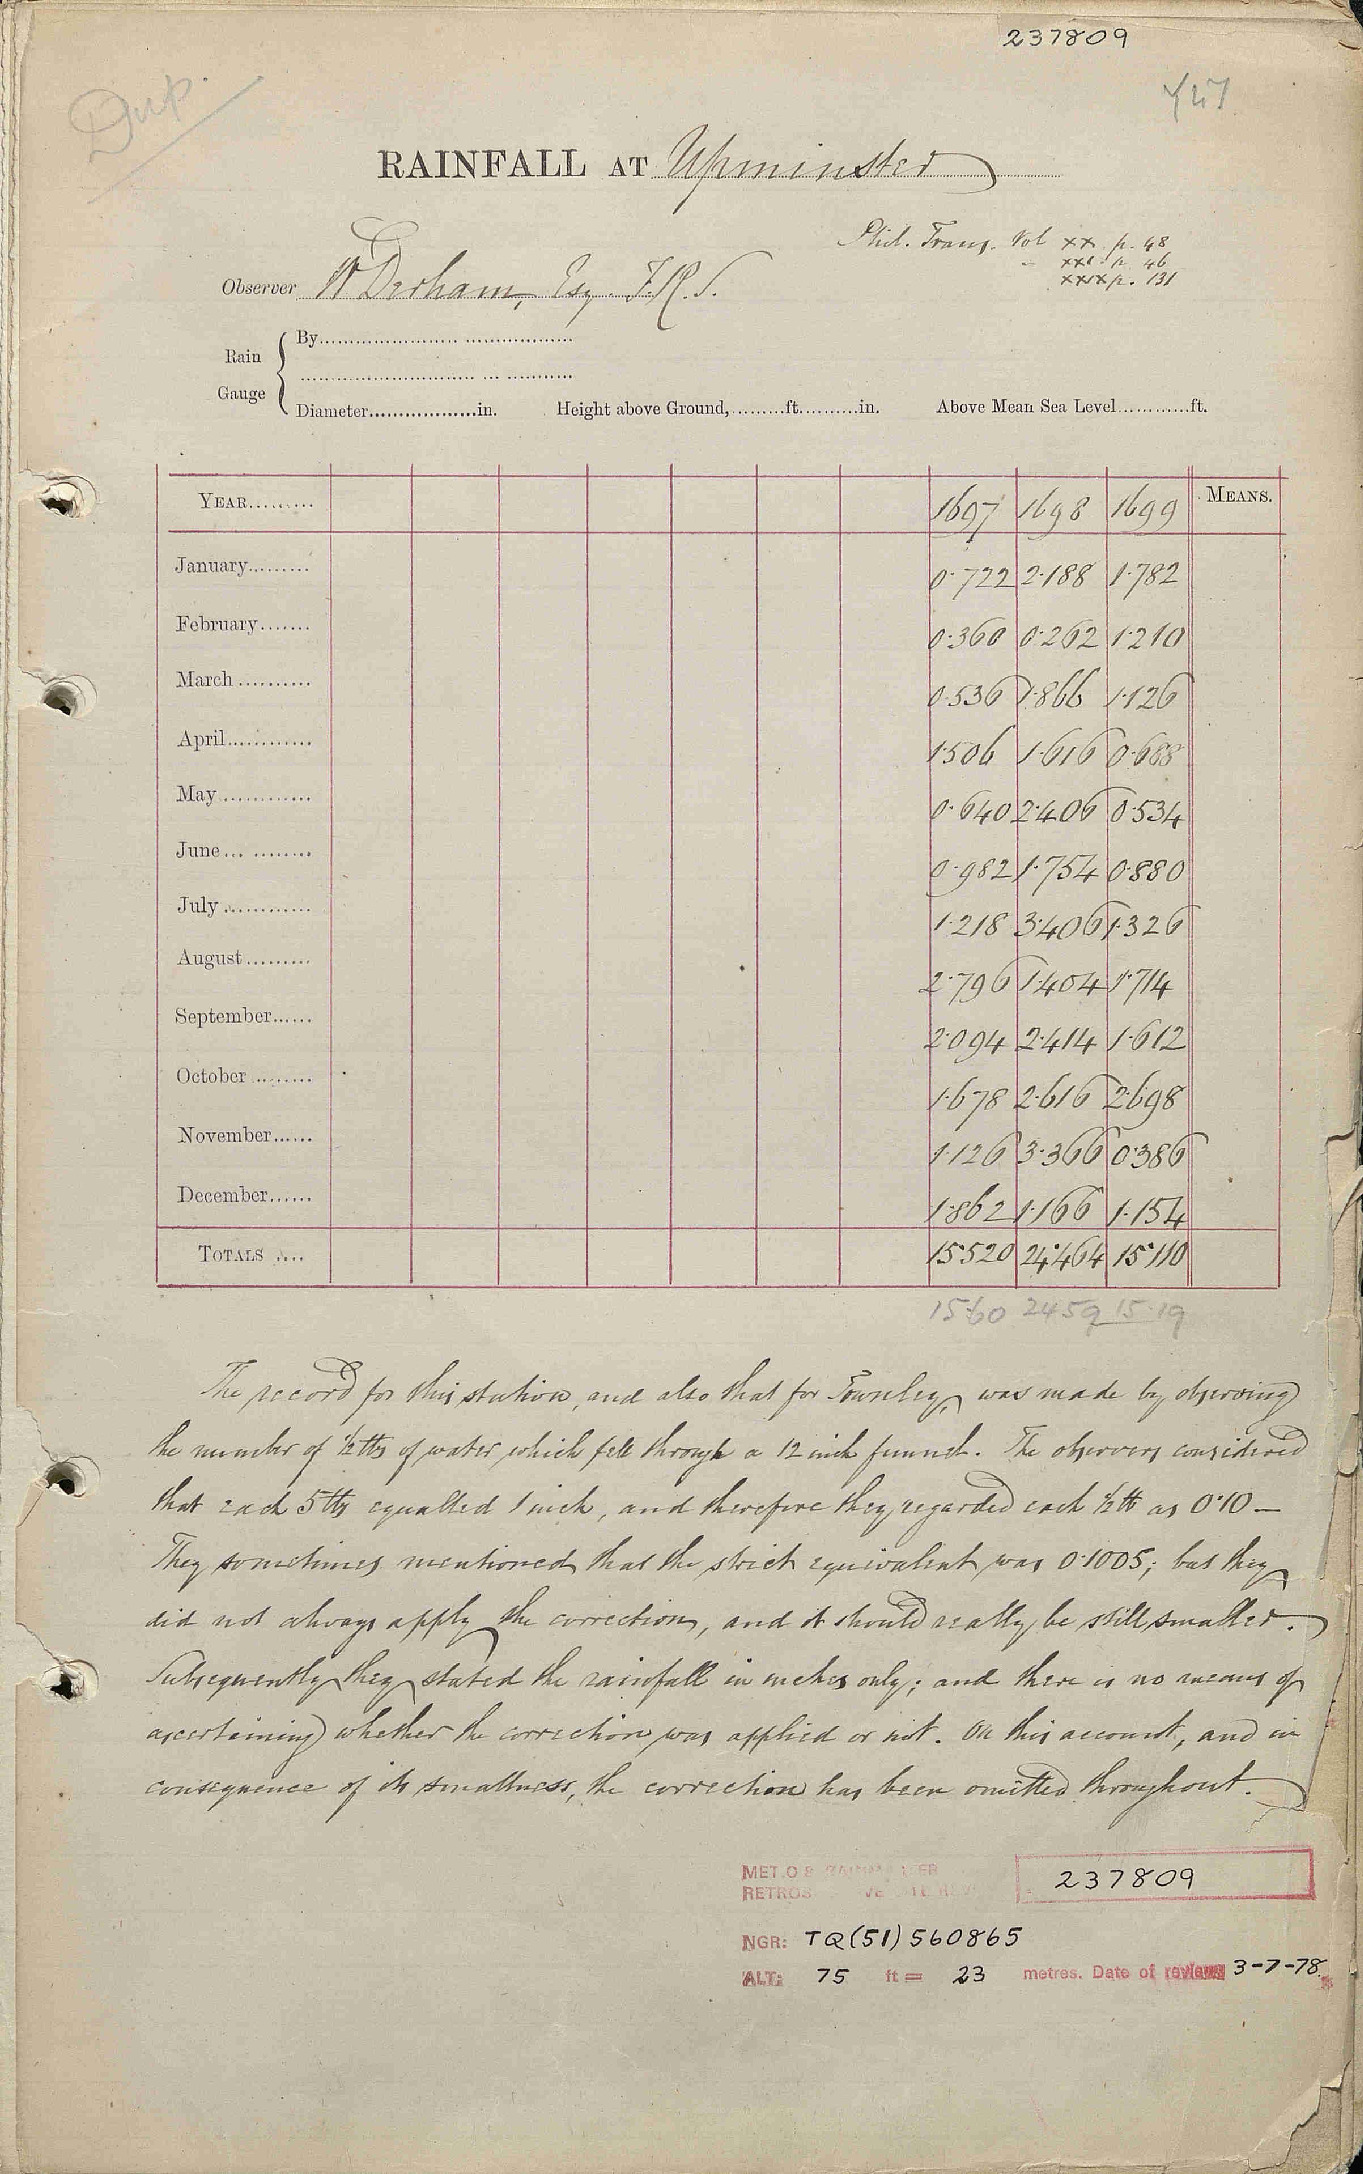 237809
Dup.
RAINFALL AT Upminster
Phil. Trans. Vol xx p. 48
- xxi p. 46
xxix p. 131
Observer W Derham, Esq. F.R.S.
Rain Gauge
By
Diameter in. Height above Ground, ft. in. Above Mean Sea Level ft.
YEAR 1697 1698 1699 MEANS.
January 0.722 2.188 1.782
February 0.360 0.262 1.210
March 0.536 1.866 1.126
April 1.506 1.616 0.688
May 0.640 2.406 0.534
June 0.982 1.754 0.880
July 1.218 3.406 1.326
August 2.796 1.404 1.714
September 2.094 2.414 1.612
October 1.678 2.616 2.698
November 1.126 3.366 0.386
December 1.862 1.166 1.154
TOTALS 15.520 24.464 15.110
15.60 24 59 15.19
The record for this station, and also that for Townley, was made by observing
the number of ½ lbs of water which fell through a 12 inch funnel. The observers considered
that each 5 lbs equalled 1 inch, and therefore they regarded each ½ lb as 0.10 —
They sometimes mentioned that the strict equivalent was 0.1005; but they
did not always apply the correction, and it should really be still smaller.
Subsequently they stated the rainfall in inches only; and there is no means of
ascertaining whether the correction was applied or not. On this account, and in
consequence of its smallness, the correction has been omitted throughout.
MET.O 8
RETROS
237809
NGR: TQ(51)560865
ALT: 75 ft = 23 metres. Date of review 3-7-78